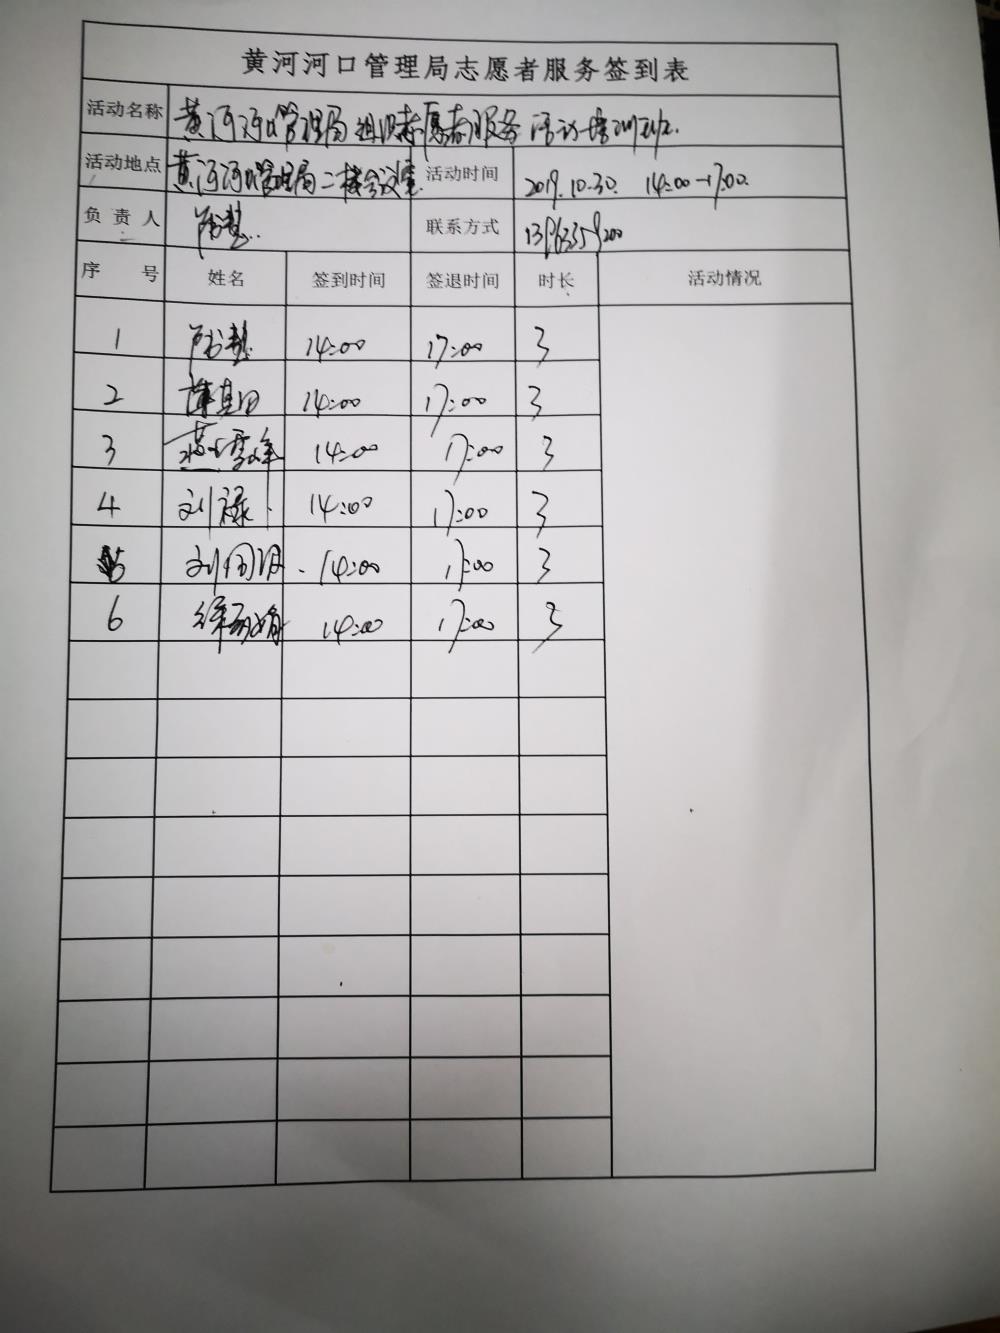 黄河河口管理局志愿者服务签到表
活动名称 黄河河口管理局组织志愿者服务活动培训班.
活动地点 黄河河口管理局二楼会议室 活动时间 2019.10.30. 14:00-17:00.
负责人 联系方式
序号 姓名 签到时间 签退时间 时长 活动情况
1 14:00 17:00 3
2 14:00 17:00 3
3 14:00 17:00 3
4 刘禄 14:00 17:00 3
5 刘 14:00 17:00 3
6 14:00 17:00 3